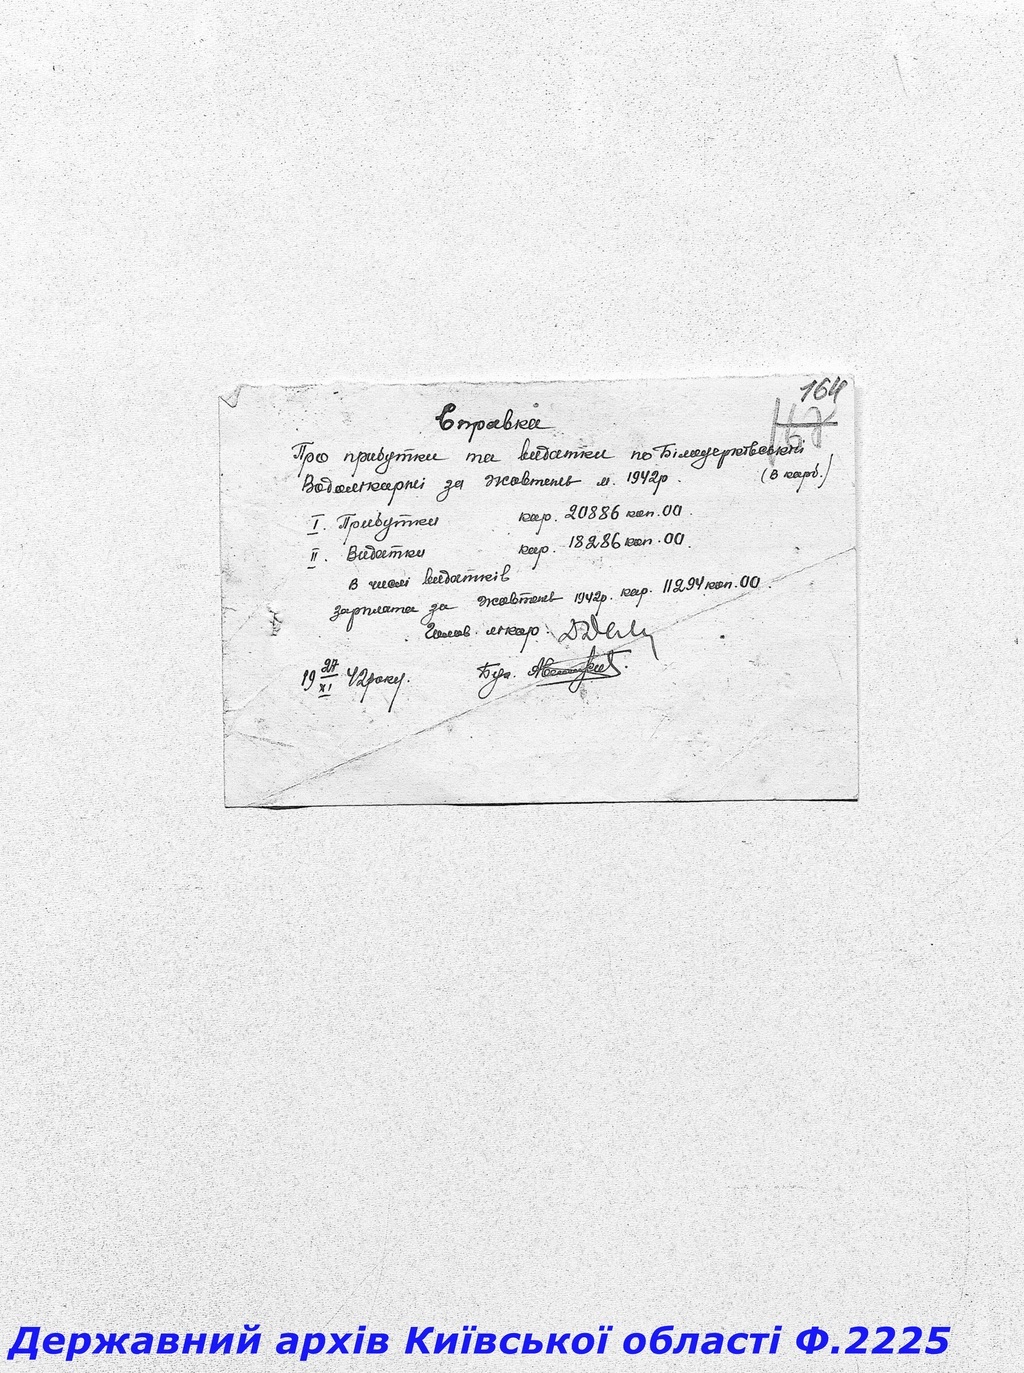 164
Справка
Про прибутки та видатки по Білоцерківській
Водолікарні за жовтень м. 1942р. (в карб.)
I. Прибутки кар. 20886 коп. 00.
II. Видатки кар. 18286 коп. 00.
В числі видатків
зарплата за жовтень 1942р. кар. 11294 коп. 00
Голов. лікар.
19 27/XI 42 року. Бух.
Державний архів Київської області Ф.2225